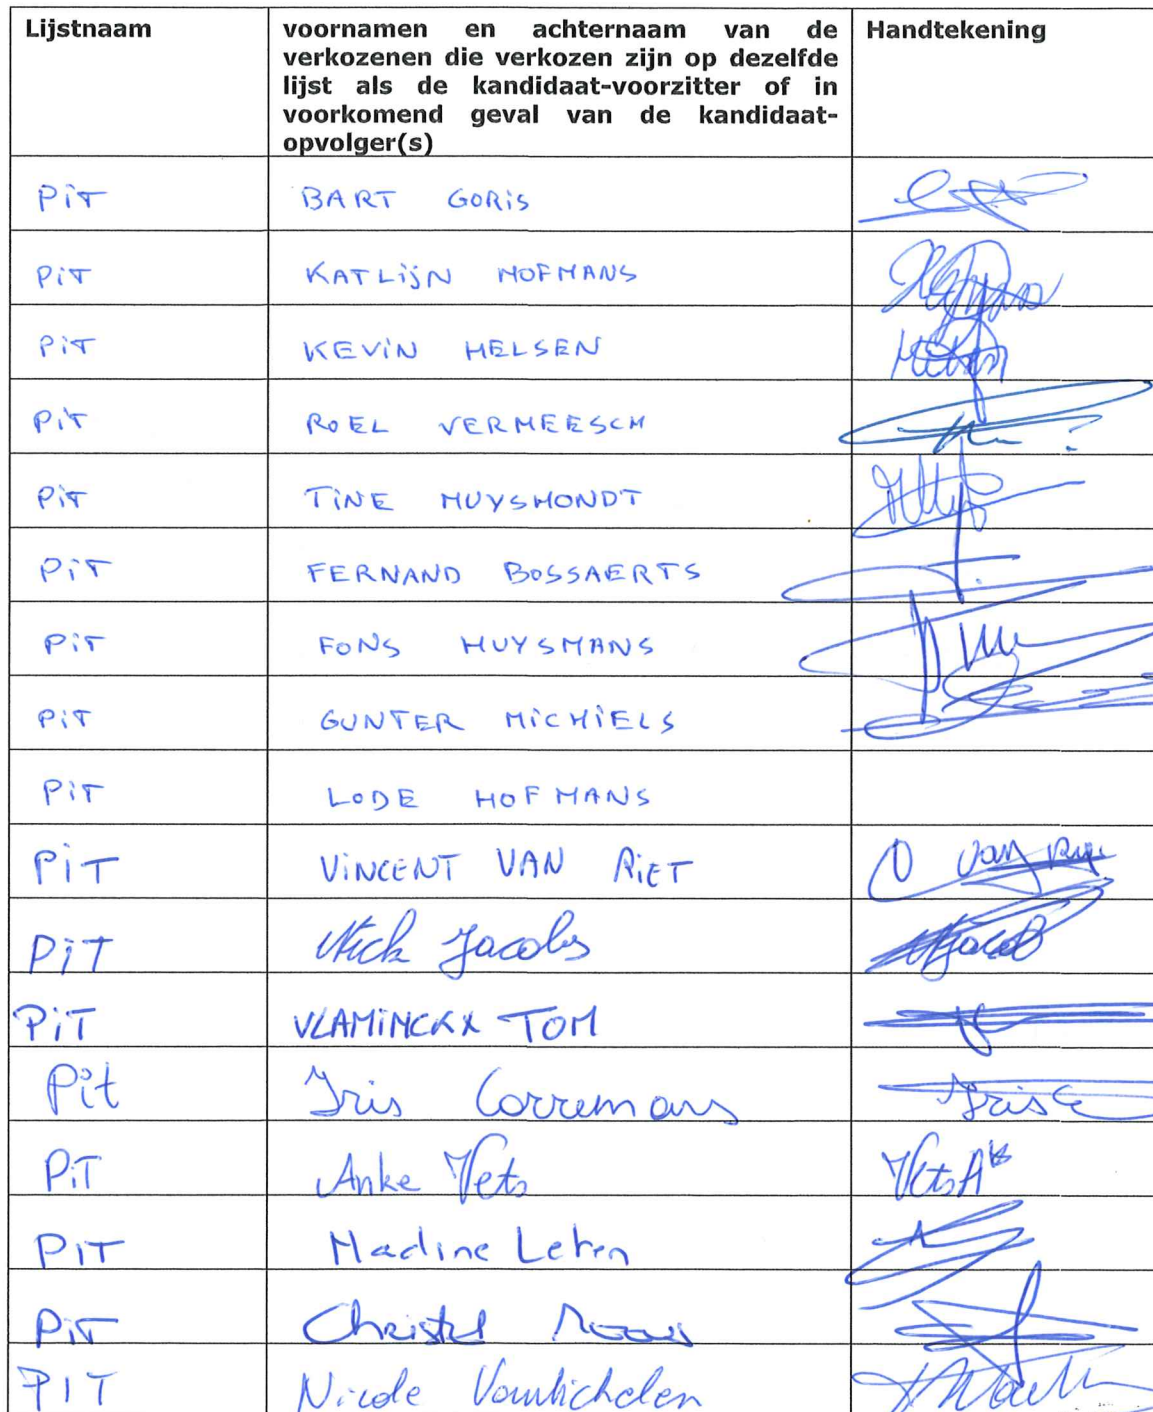 Lijstnaam
voornamen en achternaam van de
verkozenen die verkozen zijn op dezelfde
lijst als de kandidaat-voorzitter of in
voorkomend geval van de kandidaat-
opvolger(s)
Handtekening
PiT BART GORiS
PiT KATLIJN HOFMANS
PiT KEViN HELSEN
PiT ROEL VERMEESCH
PiT TiNE MUYSHONDT
PiT FERNAND BOSSAERTS
PiT FONS HUYSMANS
PiT GUNTER MiCHiELS
PiT LODE HOFMANS
PiT ViNCENT VAN RiET
PiT Nick Jacobs
PiT VLAMiNCKX TOM
Pit Iris Corremans Iris C
PiT Anke Vets Vets A
PiT Nadine Leten
PiT Christel
PIT Nicole